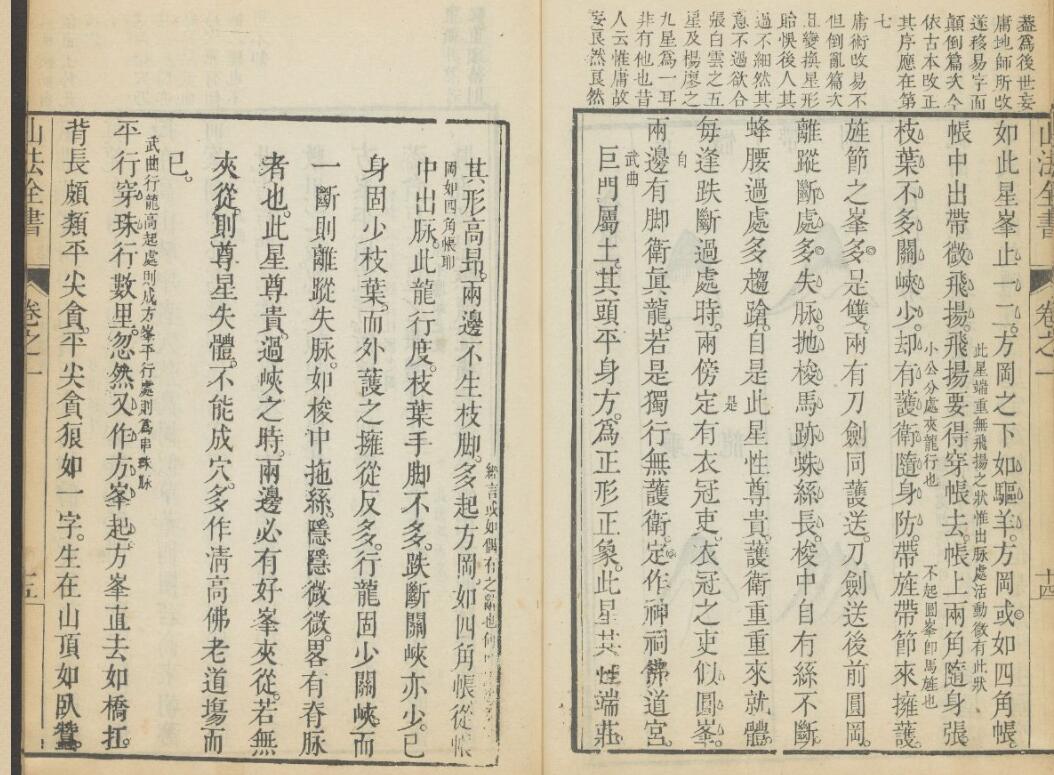 蓋爲後世妄
庸地師所改
遂移易字面
顛倒篇次今
依古本改正
其序應在第
七
庸術改易不
但倒亂篇次
且變換星形
貽悞後人其
過不細然其
意不過欲合
張白雲之五
星及楊廖之
九星爲一耳
非有他也昔
人云惟庸故
妄良然良然
山法全書
卷之一
十四
如此星峯止一二。方岡之下如驅羊。方岡或如四角帳
此星端重無飛揚之狀惟出脉處活動微有此狀
帳中出帶微飛揚。飛揚要得穿帳去。帳上兩角隨身張
小公分處夾龍行也
不起圓峯即馬旌也
枝葉不多關峽少。却有護衛隨身防。帶旌帶節來擁護。
旌節之峯多是雙。兩有刀劍同護送。刀劍送後前圓岡。
離蹤斷處多失脉。抛梭馬跡蛛絲長。梭中自有絲不斷
蜂腰過處多趨蹌。自是此星性尊貴。護衛重重來就體。
是
每逢跌斷過處時。兩傍定有衣冠吏。衣冠之吏似圓峯。
自
兩邊有脚衛眞龍。若是獨行無護衛。定作神祠佛道宮。
武曲
巨門屬土。其頭平身方。爲正形正象。此星其性端莊。
其形高昻。兩邊不生枝脚。多起方岡如四角帳從帳
岡如四角帳耶
中出脉。此龍行度。枝葉手脚不多。跌斷關峽亦少。已
身固少枝葉。而外護之擁從反多。行龍固少關峽。而
一斷則離蹤失脉。如梭中拖絲。隱隱微微。畧有脊脉
者也。此星尊貴。過峽之時。兩邊必有好峯夾從。若無
夾從。則尊星失體。不能成穴。多作清高佛老道場而
已。
武曲行龍高起處則成方峯平行處則爲串珠脉
平行穿珠行數里。忽然又作方峯起。方峯直去如橋扛
背長頗類平尖貪。平尖貪狼如一字。生在山頂如臥蠶。
山法全書
卷之一